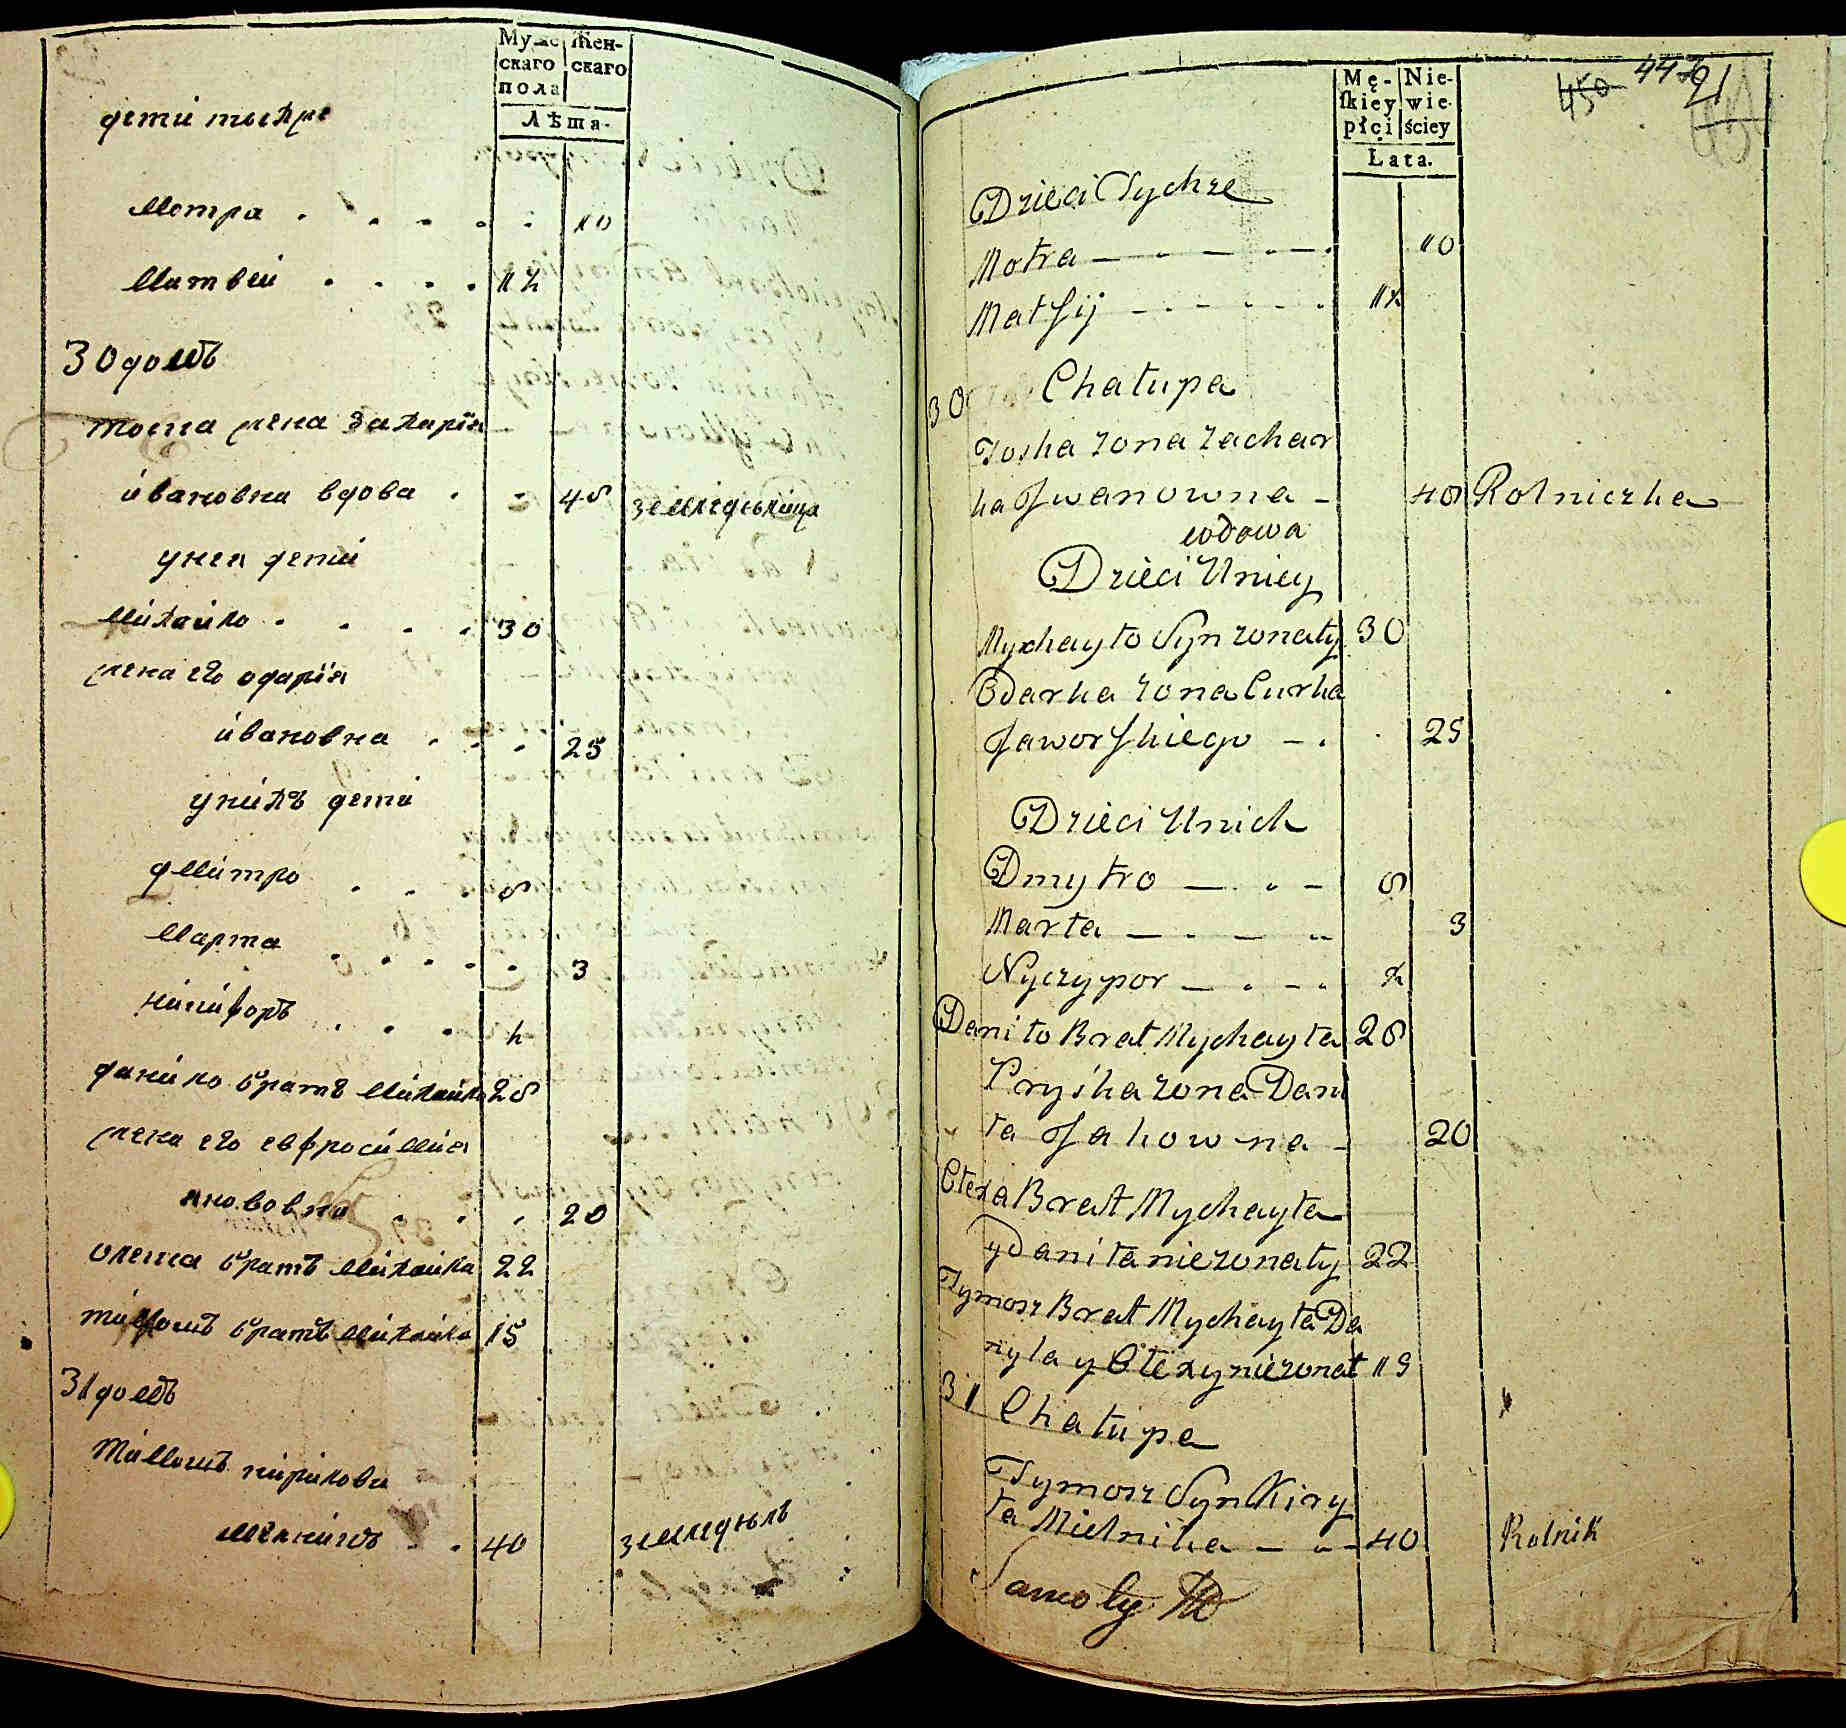 Муже- Жен-
скаго скаго
пола
Лѣта.
дети тыхже
Мотра . . . . . 10
Матвей . . . . 12
30 домъ
тоста жена Захарiя
ивановна вдова . - 48 земледѣлица
унея дети
Михайло . . . . 30
жена его одарiя
ивановна . . . 25
унихъ дети
дмитро . . . 8
Марта . . . . . 3
никифоръ . . . 2
данило братъ Михайла 28
жена его евфросимия
якововна . . . 20
олекса братъ Михайла 22
тимошъ братъ Михайла 15
31 домъ
Тимошъ кирилови
Мелникъ - . 40 земледѣлъ
Mę- Nie-
skiey wie-
płci ściey
Łata.
450 447 91
Dzieci Tychże
Motra 10
Matfij 12
30 Chałupa
Joska zona Zachar
ka Jwanowna - 48 Rolniczka
wdowa
Dzieci Uniey
Mychayło Syn zonaty 30
Odarka zona Curka
Jaworskiego - . 25
Dzieci Unich
Dmytro 8
Marta 3
Nyczypor 2
Daniło Brat Mychayła 28
Pryśka zona Dani
ła Jakowna - 20
Olexa Brat Mychayła
y Daniła niezonaty 22
Tymosz Brat Mychayła Da
nyla y Olexy niezonat 15
31 Chałupa
Tymosz Syn Kiry
ła Mielnika 40 Rolnik